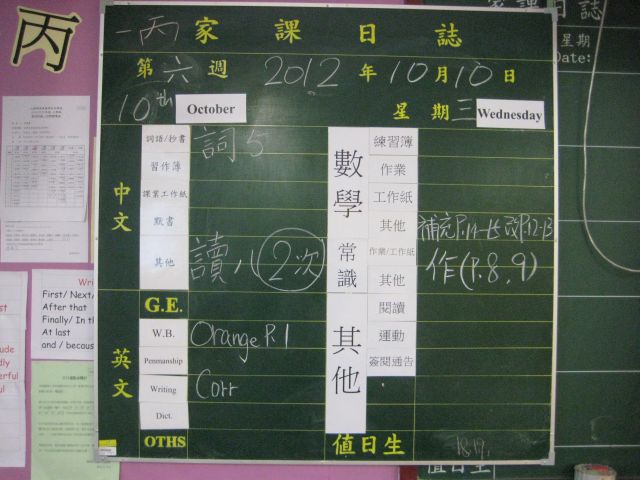 丙
一丙家課日誌
第六週 2012年10月10日
10th October 星期三 Wednesday
中文
詞語/抄書 詞5
習作簿
課業工作紙
默書
其他 讀八(2次)
G.E.
英文
W.B. Orange P.1
Penmanship
Writing Corr
Dict.
OTHS
數學
練習簿
作業
工作紙
其他 補充P.14-15 改P.12-13
常識
作業/工作紙 作(P.8,9)
其他
其他
閱讀
運動
簽閱通告
值日生 18.19.
家課日誌
星期
Date:
值日生
First/ Next/
After that
Finally/ In th
At last
and / becaus